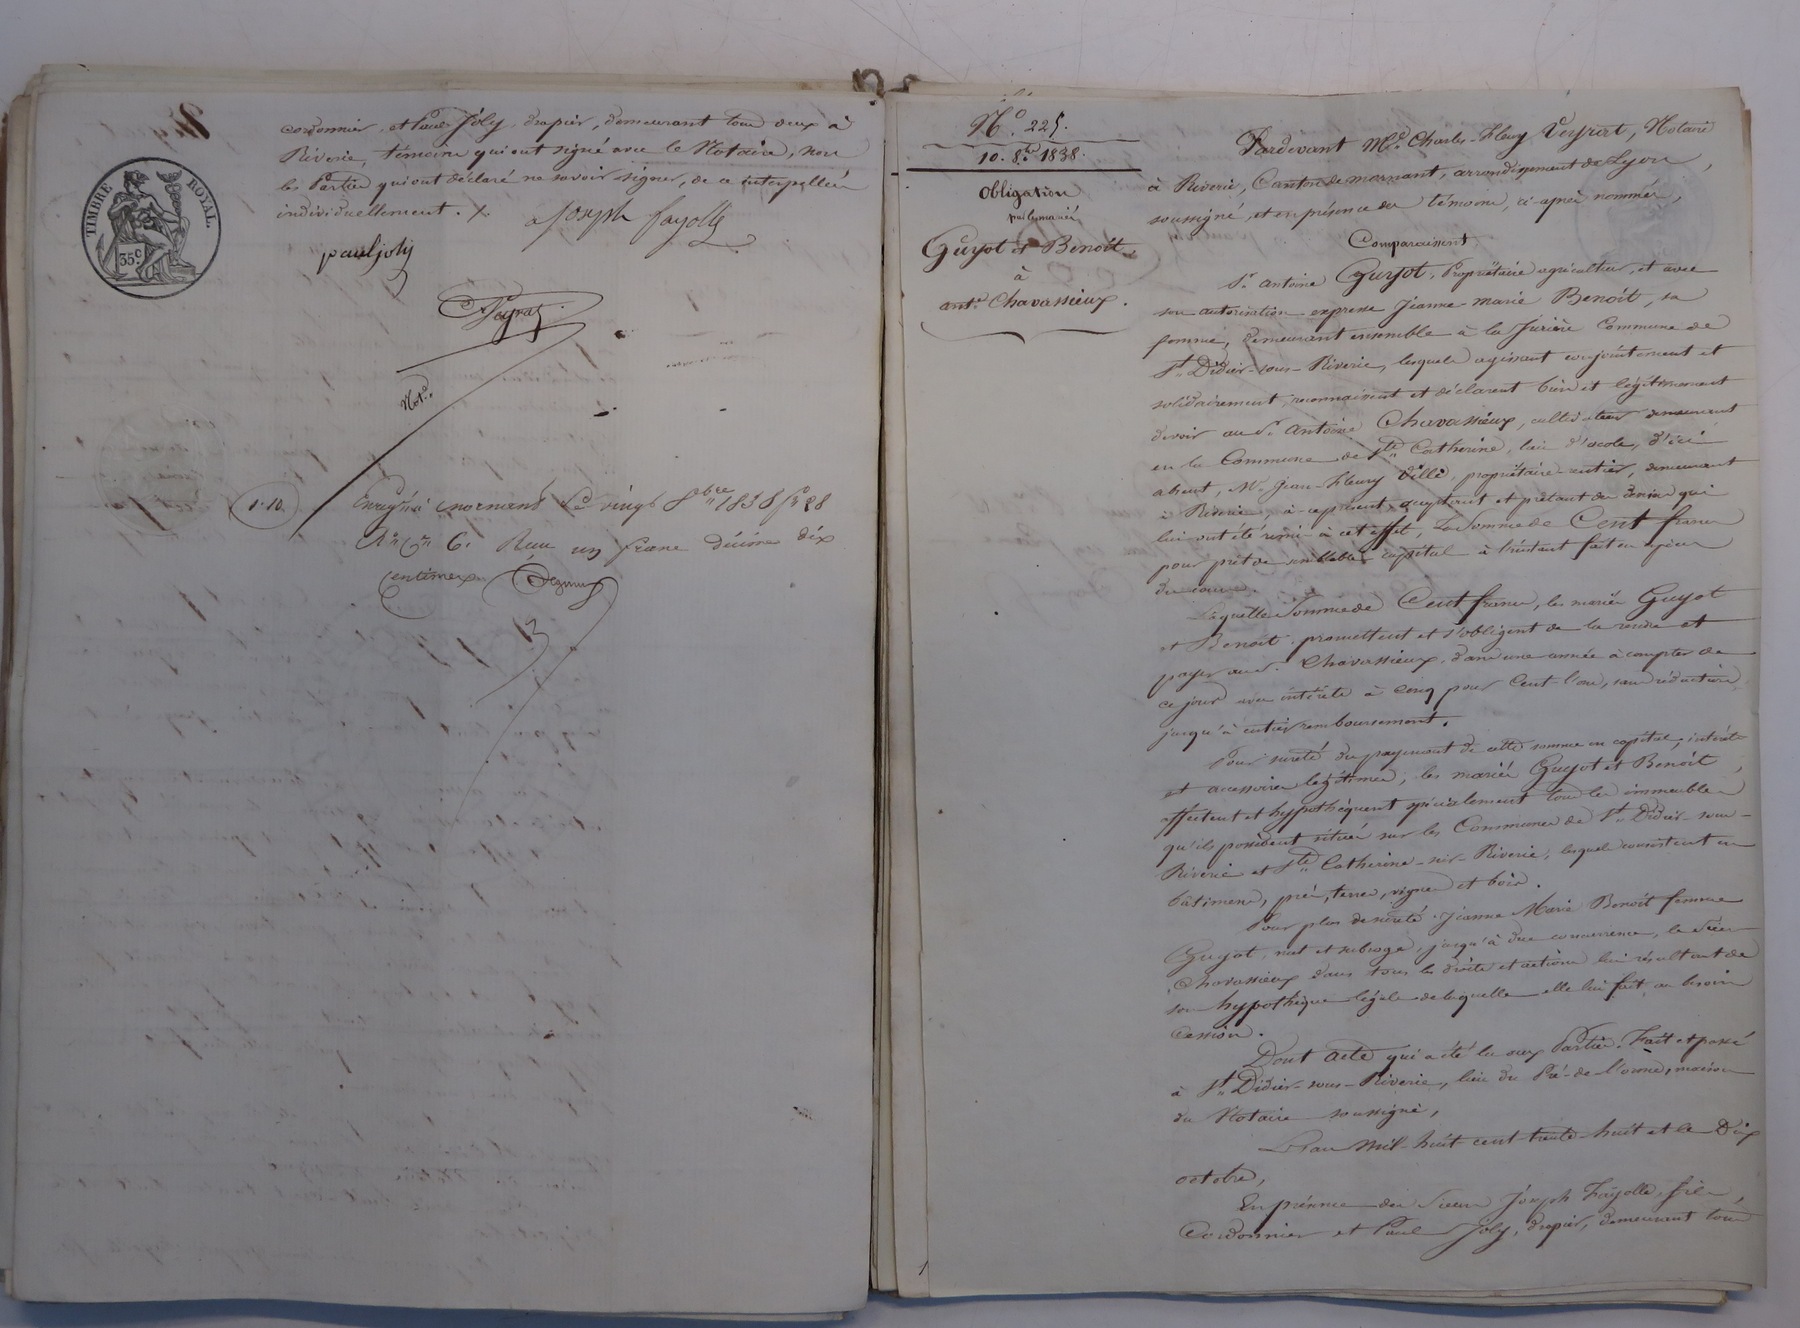 cordonnier, et Paul Joly, drapier, demeurant tous deux à
Riverie, témoins qui ont signé avec le Notaire, non
les Parties qui ont déclaré ne savoir signer, de ce interpellées
individuellement. /.
TIMBRE ROYAL
35 c.
joseph fayolle
paul joly
Not.re
1.10.
Enregistré à mornant le vingt 8bre 1838 fo 28
Ro Cse 6. Reçu un franc décime dix
centimes
No. 225.
10. 8bre 1838.
Obligation
par les mariés
Guyot et Benoît
à
ant.e Chavassieux.
Pardevant Me. Charles-Fleury Veyrat, Notaire
à Riverie, Canton de mornant, arrondissement de Lyon,
soussigné, et en présence des témoins, ci-après nommés,
Comparaissent
Sr. antoine Guyot, Propriétaire agriculteur, et avec
son autorisation expresse Jeanne-marie Benoît, sa
femme, demeurant ensemble à la Commune de
St. Didier-sous-Riverie, lesquels agissant conjointement et
solidairement, reconnaissent et déclarent bien et légitimement
devoir au Sr. antoine Chavassieux, cultivateur demeurant
en la Commune de Ste Catherine, lieu d'acole, d'ici
absent, Mr. Jean-Fleury Villé, propriétaire-rentier, demeurant
à Riverie, à ce présent, acceptant et prêtant des deniers qui
lui ont été remis à cet effet, La Somme de Cent francs
pour prêt de semblable capital à l'instant fait en espèces
du cours.
Laquelle Somme de Cent francs, les mariés Guyot
et Benoît promettent et s'obligent de la rendre et
payer au Sr. Chavassieux, dans une année à compter de
ce jour avec intérêts à cinq pour Cent l'an, sans réduction,
jusqu'à entier remboursement.
Pour sureté du payement de cette somme en capital, intérêts
et accessoires légitimes, les mariés Guyot et Benoît,
affectent et hypothèquent spécialement tous les immeubles
qu'ils possèdent situés sur les Communes de St. Didier-sous-
Riverie et Ste Catherine-sur-Riverie, lesquels consistent en
bâtimens, prés, terres, vignes et bois.
Pour plus de sureté Jeanne Marie Benoît femme
Guyot, met et subroge, jusqu'à due concurrence, le Sieur
Chavassieux dans tous les droits et actions lui résultant de
son hypothèque légale de laquelle elle lui fait au besoin
Cession.
Dont acte qui a été lu aux Parties. Fait et passé
à St. Didier-sous-Riverie, lieu du Pré-de-l'orme, maison
du Notaire soussigné,
L'an mil-huit cent-trente-huit et le Dix
octobre,
En présence des Sieurs Joseph Fayolle, fils,
Cordonnier et Paul Joly, drapier, demeurant tous